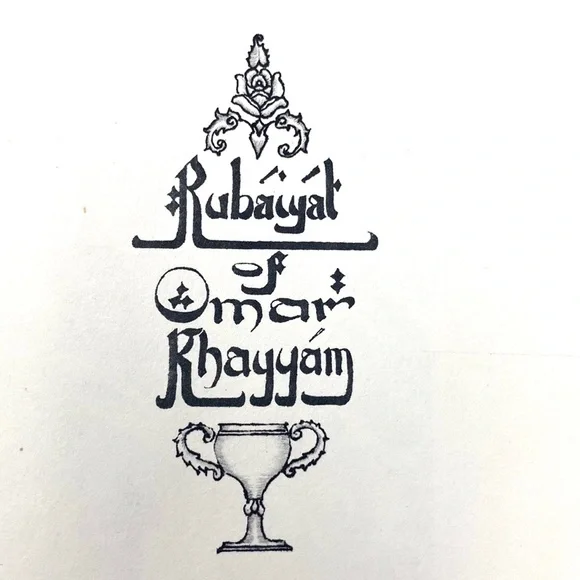 Rubáiyát
of
Omar
Khayyám